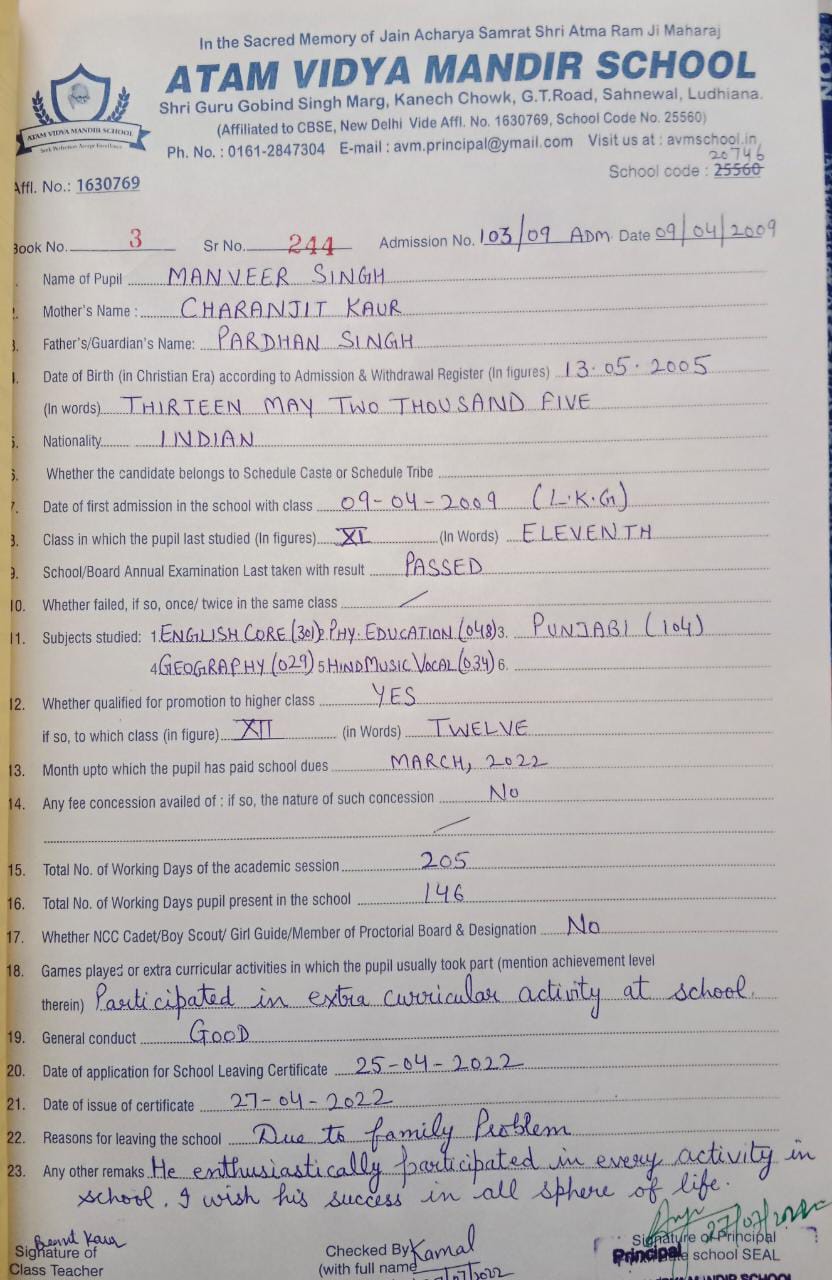 In the Sacred Memory of Jain Acharya Samrat Shri Atma Ram Ji Maharaj
ATAM VIDYA MANDIR SCHOOL
Shri Guru Gobind Singh Marg, Kanech Chowk, G.T.Road, Sahnewal, Ludhiana.
(Affiliated to CBSE, New Delhi Vide Affl. No. 1630769, School Code No. 25560)
Ph. No. : 0161-2847304 E-mail : avm.principal@ymail.com Visit us at : avmschool.in
ATAM VIDYA MANDIR SCHOOL
20746
Affl. No.: 1630769 School code : 25560
Book No. 3 Sr No. 244 Admission No. 103/09 ADM. Date 09/04/2009
Name of Pupil MANVEER SINGH
Mother's Name : CHARANJIT KAUR
Father's/Guardian's Name: PARDHAN SINGH
Date of Birth (in Christian Era) according to Admission & Withdrawal Register (In figures) 13.05.2005
(In words) THIRTEEN MAY TWO THOUSAND FIVE
5. Nationality INDIAN
6. Whether the candidate belongs to Schedule Caste or Schedule Tribe
7. Date of first admission in the school with class 09-04-2009 (L.K.G)
8. Class in which the pupil last studied (In figures) XI (In Words) ELEVENTH
9. School/Board Annual Examination Last taken with result PASSED
10. Whether failed, if so, once/ twice in the same class /
11. Subjects studied: 1. ENGLISH CORE (301) 2. PHY. EDUCATION (048) 3. PUNJABI (104)
4 GEOGRAPHY (029) 5 HIND MUSIC VOCAL (034) 6.
12. Whether qualified for promotion to higher class YES
if so, to which class (in figure) XII (in Words) TWELVE
13. Month upto which the pupil has paid school dues MARCH, 2022
14. Any fee concession availed of : if so, the nature of such concession No
/
15. Total No. of Working Days of the academic session 205
16. Total No. of Working Days pupil present in the school 146
17. Whether NCC Cadet/Boy Scout/ Girl Guide/Member of Proctorial Board & Designation No
18. Games played or extra curricular activities in which the pupil usually took part (mention achievement level
therein) Participated in extra curricular activity at school.
19. General conduct GOOD
20. Date of application for School Leaving Certificate 25-04-2022
21. Date of issue of certificate 27-04-2022
22. Reasons for leaving the school Due to family Problem
23. Any other remaks He enthusiastically participated in every activity in
school. I wish his success in all sphere of life.
Kaur Kamal
Signature of Checked By Signature of Principal
Class Teacher (with full name Principal school SEAL